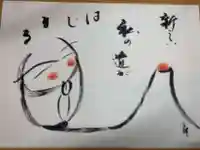 新しい
私の道が
はじまる